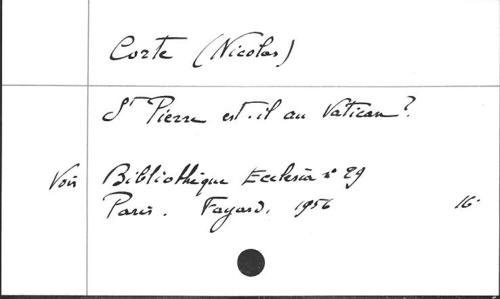 Corte (Nicolas)
St Pierre est-il au Vatican?
Voir Bibliothèque Ecclesia n° 29
Paris. Fayard, 1956 16·